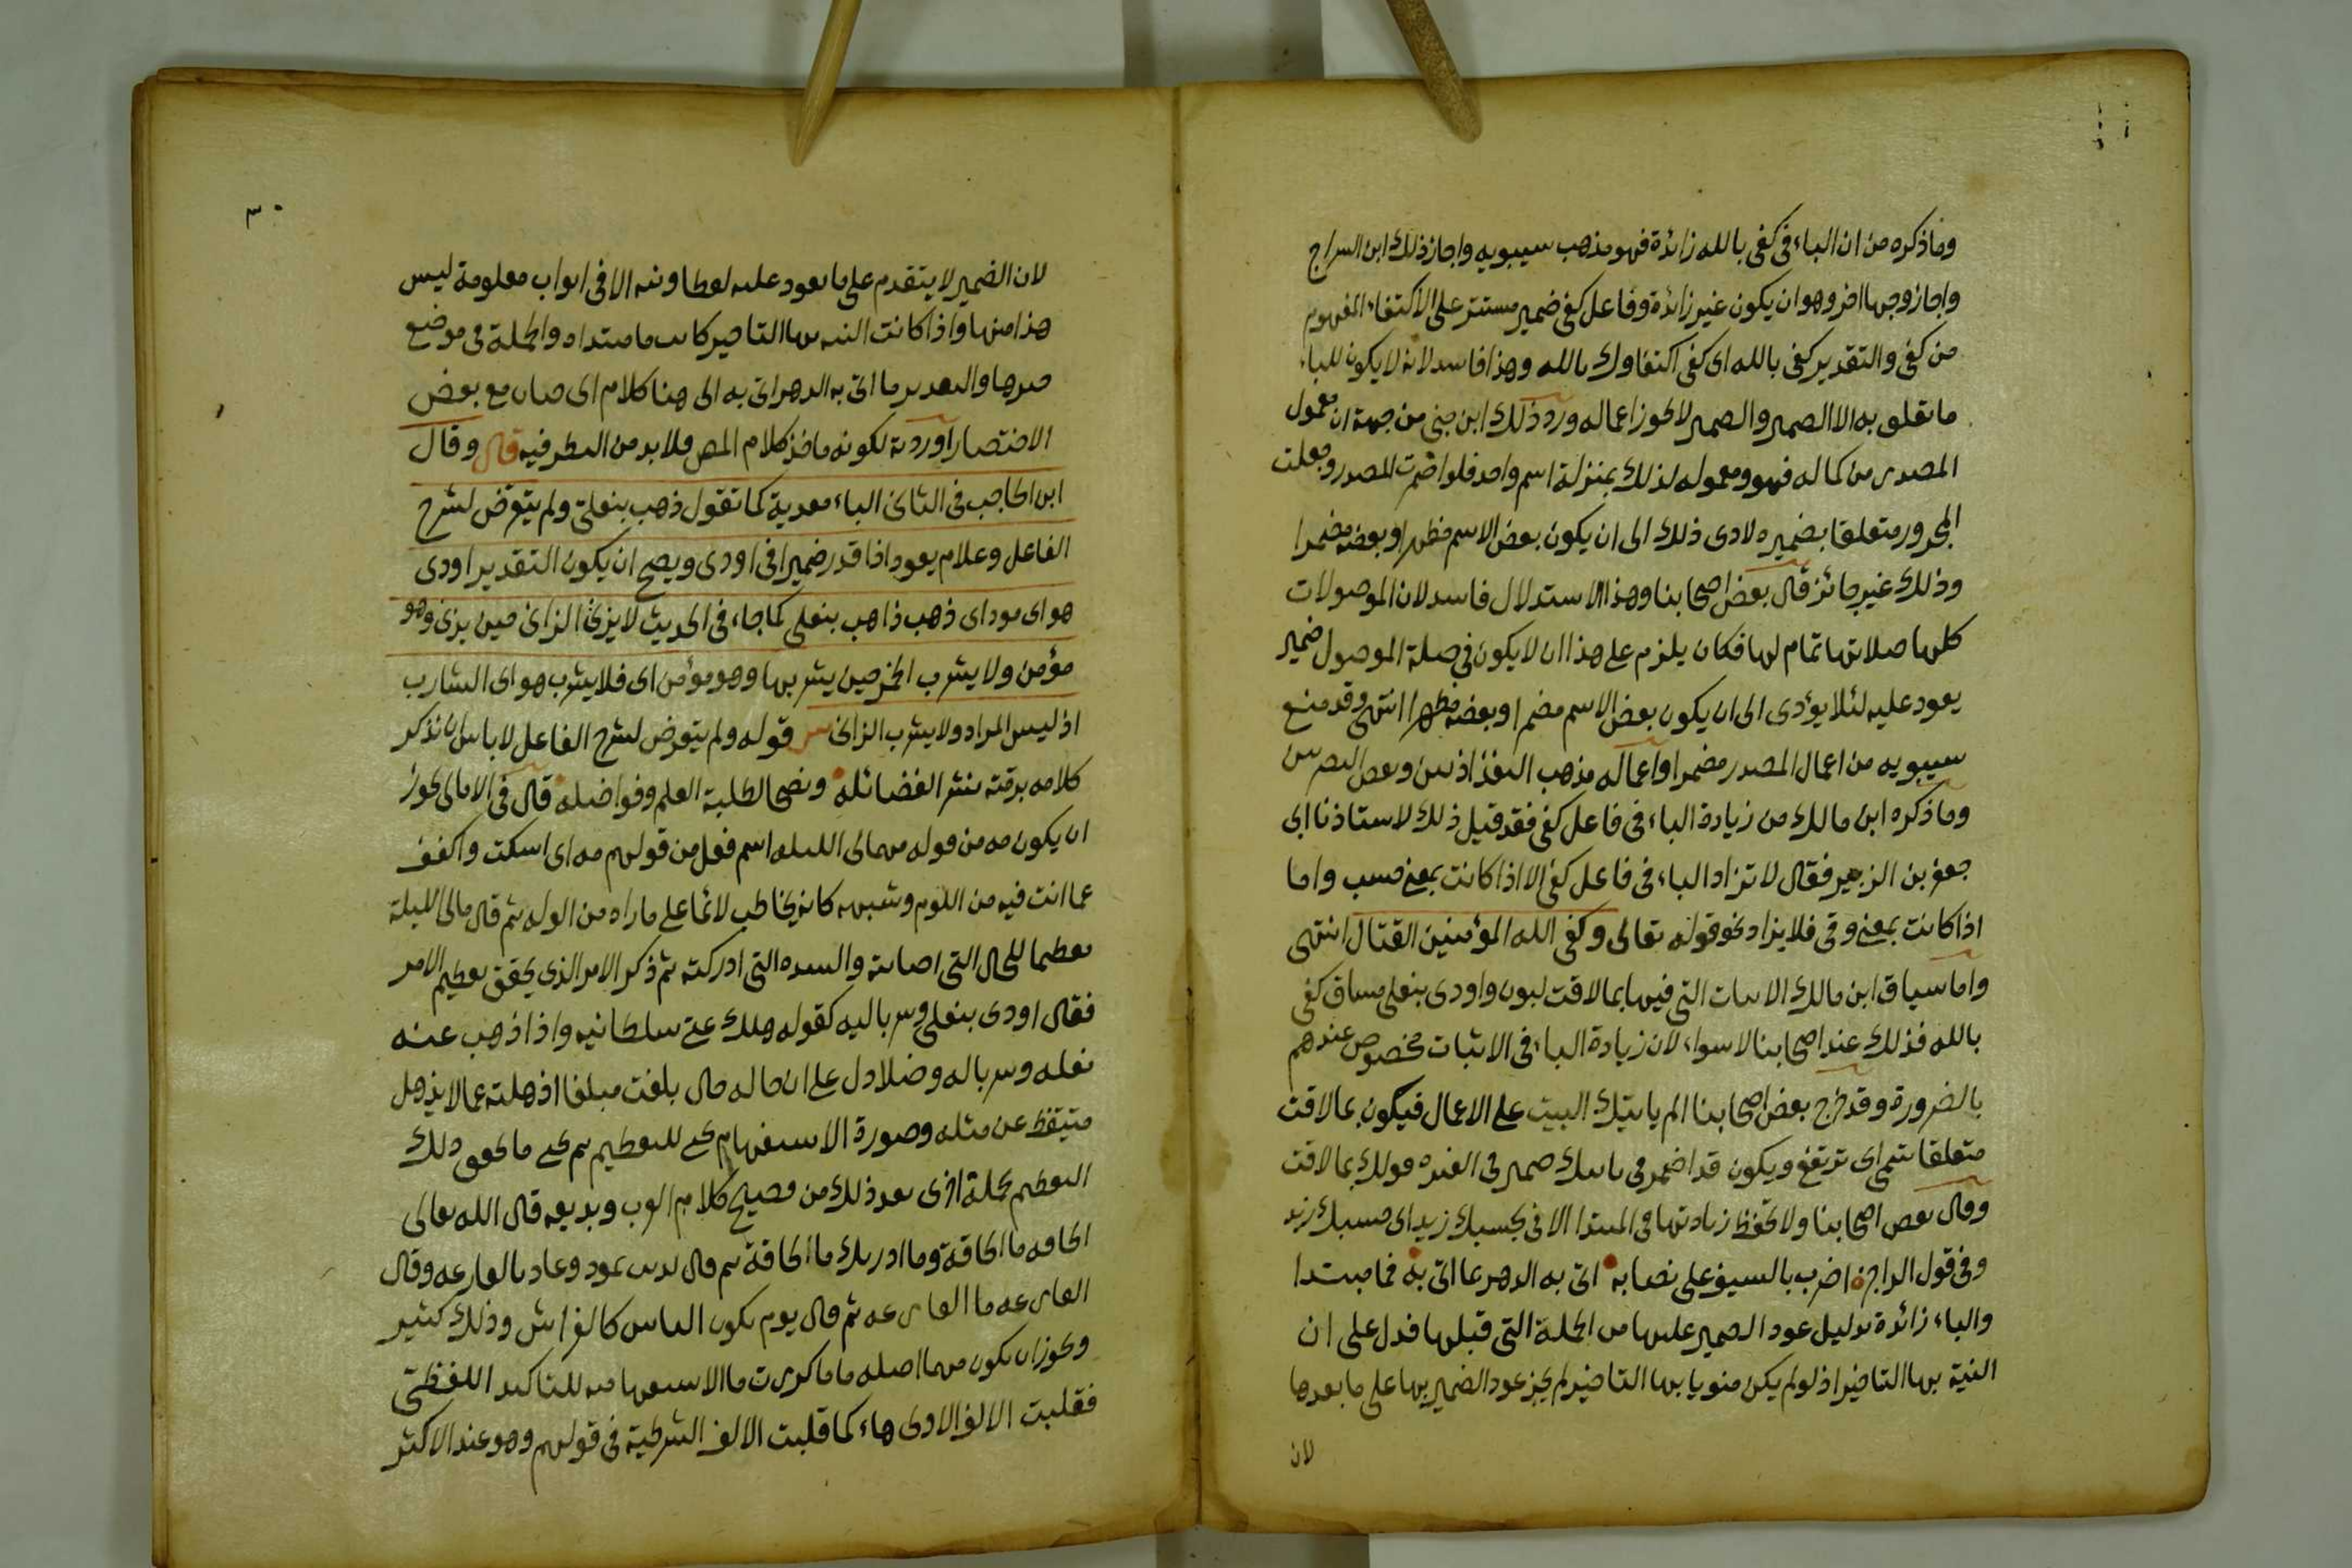 وما ذكره من ان الباء فى كفى بالله زائدة فهو مذهب سيبويه واجاز ذلك ابن السراج
واجاز وجها اخر وهو ان يكون غير زائدة وفاعل كفى ضمير مستتر على الاكتفاء المفهوم
من كفى والتقدير كفى بالله اى كفى اكتفاوك بالله وهذا فاسد لانه لا يكون للباء
ما تعلق به الا الضمير والضمير لا يجوز اعماله ورد ذلك ابن جنى من جهة ان معمول
المصدر من كماله فهو ومعموله لذلك بمنزلة اسم واحد فلو اضمرت المصدر وجعلت
المجرور متعلقا بضميره لادى ذلك الى ان يكون بعض الاسم مظهرا وبعضه مضمرا
وذلك غير جائز قال بعض اصحابنا وهذا الاستدلال فاسد لان الموصولات
كلها صلاتها تمام لها فكان يلزم على هذا ان لا يكون فى صلة الموصول ضمير
يعود عليه لئلا يؤدى الى ان يكون بعض الاسم مضمرا وبعضه مظهرا انتهى وقد منع
سيبويه من اعمال المصدر مضمرا واعماله مذهب البغداذيين وبعض البصريين
وما ذكره ابن مالك من زيادة الباء فى فاعل كفى فقد قيل ذلك لاستاذنا ابى
جعفر بن الزبير فقال لا تزاد الباء فى فاعل كفى الا اذا كانت بمعنى حسب واما
اذا كانت بمعنى وقى فلا يزاد نحو قوله تعالى وكفى الله المؤمنين القتال انتهى
واما سياق ابن مالك الابيات التى فيها بما لاقت لبون واودى بنعلى مساق كفى
بالله فذلك عند اصحابنا لا سواء لان زيادة الباء فى الاثبات مخصوص عندهم
بالضرورة وقد خرج بعض اصحابنا الم ياتيك البيت على الاعمال فيكون بما لاقت
متعلقا بتنمى اى ترتفع ويكون قد اضمر فى ياتيك ضمير فى قولك بما لاقت
وقال بعض اصحابنا ولا يحفظ زيادتها فى المبتدا الا فى بحسبك زيد اى حسبك زيد
وفى قول الراجز اضرب بالسيف على نصابه اتى به الدهر بما اتى به فما مبتدا
والباء زائدة بدليل عود الضمير عليها من الجملة التى قبلها فدل على ان
النية بها التاخير اذ لو لم يكن منويا بها التاخير لم يجز عود الضمير بها على ما بعدها
لان
٣٠
لان الضمير لا يتقدم على ما يعود عليه لفظا ونية الا فى ابواب معلومة ليس
هذا منها واذا كانت النية بها التاخير كانت ما مبتداه والجملة فى موضع
خبرها والتقدير ما اتى به الدهر اتى به الى هنا كلام ابى حيان مع بعض
الاختصار اوردته لكونه ماخذ كلام المص فلا بد من النظر فيه قال وقال
ابن الحاجب فى الثانى الباء معدية كما تقول ذهب بنعلى ولم يتعرض لشرح
الفاعل وعلام يعود اذا قدر ضميرا فى اودى ويصح ان يكون التقدير اودى
هو اى مود اى ذهب ذاهب بنعلى كما جاء فى الحديث لا يزنى الزانى حين يزنى وهو
مؤمن ولا يشرب الخمر حين يشربها وهو مؤمن اى فلا يشرب هو اى الشارب
اذ ليس المراد ولا يشرب الزانى قوله ولم يتعرض لشرح الفاعل لا باس ان نذكر
كلامه برمته نشرا لفضائله ونصحا لطلبة العلم وفواضله قال فى الامالى يجوز
ان يكون مه من قوله مهما لى الليلة اسم فعل من قولهم مه اى اسكت واكفف
عما انت فيه من اللوم وشبهه كانه يخاطب لائما على ما راه من الوله ثم قال ما لى الليلة
تعظيما للحال التى اصابته والشدة التى ادركته ثم ذكر الامر الذى يحقق تعظيم الامر
فقال اودى بنعلى وسرباليه كقوله هلك عنى سلطانيه واذا ذهب عنه
نعله وسرباله وضلا دل على ان حاله حال بلغت مبلغا اذهلته عما لا يذهل
متيقظ عن مثله وصورة الاستفهام يجئ للتعظيم ثم يجئ ما يحقق ذلك
التعظيم بجملة اخرى بعد ذلك من فصيح كلام العرب وبديعه قال الله تعالى
الحاقة ما الحاقة وما ادريك ما الحاقة ثم قال كذبت ثمود وعاد بالقارعة وقال
القارعة ما القارعة ثم قال يوم يكون الناس كالفراش وذلك كثير
ويجوز ان يكون مهما اصله ما ما كررت ما الاستفهامية للتاكيد اللفظى
فقلبت الالف الاولى هاء كما قلبت الالف الشرطية فى قولهم وهو عند الاكثر